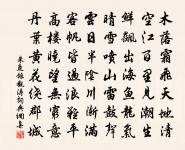 木落霜飛天地清
空江百里見潮生
鮮飆出海魚龍氣
晴雪噴山雷鼓聲
雲日半陰川漸滿
客帆皆過浪難平
高樓曉望無窮意
丹葉黃花繞郡城
朱慶餘觀濤詞典網書